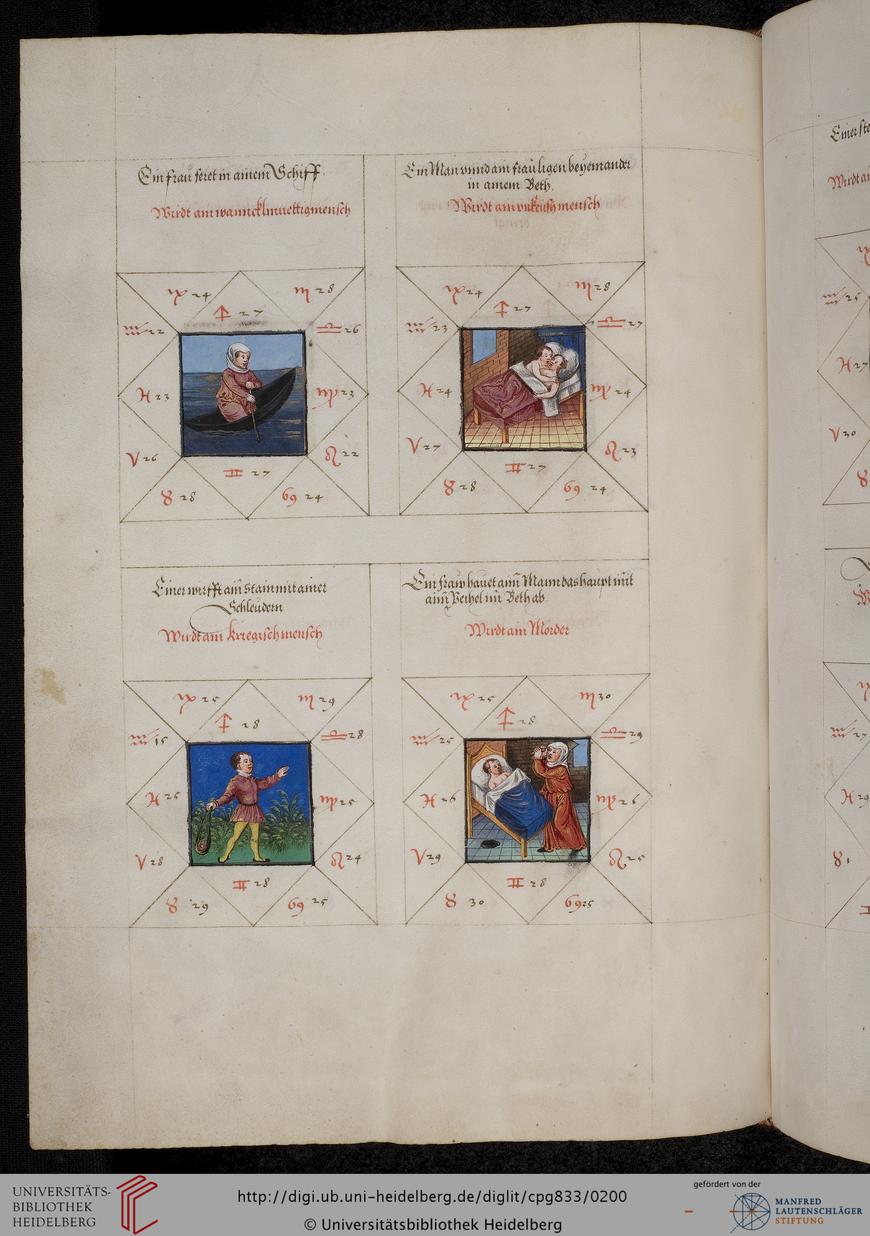 Ein frau feret in ainem Schiff.
Wirdt ain wannckhmuettig mensch
♑ 24
♏ 28
♐ 27
♒ 22
♎ 26
♓ 23
♍ 23
♈ 26
♌ 22
♊ 27
♉ 28
♋ 24
Ein Man vnnd ain frau ligen bey einander
in ainem Beth.
Wirdt ain vnkeusch mensch
♑ 24
♏ 28
♐ 27
♒ 23
♎ 27
♓ 24
♍ 24
♈ 27
♌ 23
♊ 27
♉ 28
♋ 24
Einer wirfft ain Stain mit ainer
Schleudern
Wirdt ain kriegisch mensch
♑ 25
♏ 29
♐ 28
♒ 15
♎ 28
♓ 25
♍ 25
♈ 28
♌ 24
♊ 28
♉ 29
♋ 25
Ein fraw hauet aim Mann das haupt mit
aim Peihel im Beth ab.
Wirdt ain Morder
♑ 25
♏ 30
♐ 28
♒ 25
♎ 29
♓ 26
♍ 26
♈ 29
♌ 25
♊ 28
♉ 30
♋ 25
UNIVERSITÄTS-
BIBLIOTHEK
HEIDELBERG
http://digi.ub.uni-heidelberg.de/diglit/cpg833/0200
© Universitätsbibliothek Heidelberg
gefördert von der
MANFRED
LAUTENSCHLÄGER
STIFTUNG